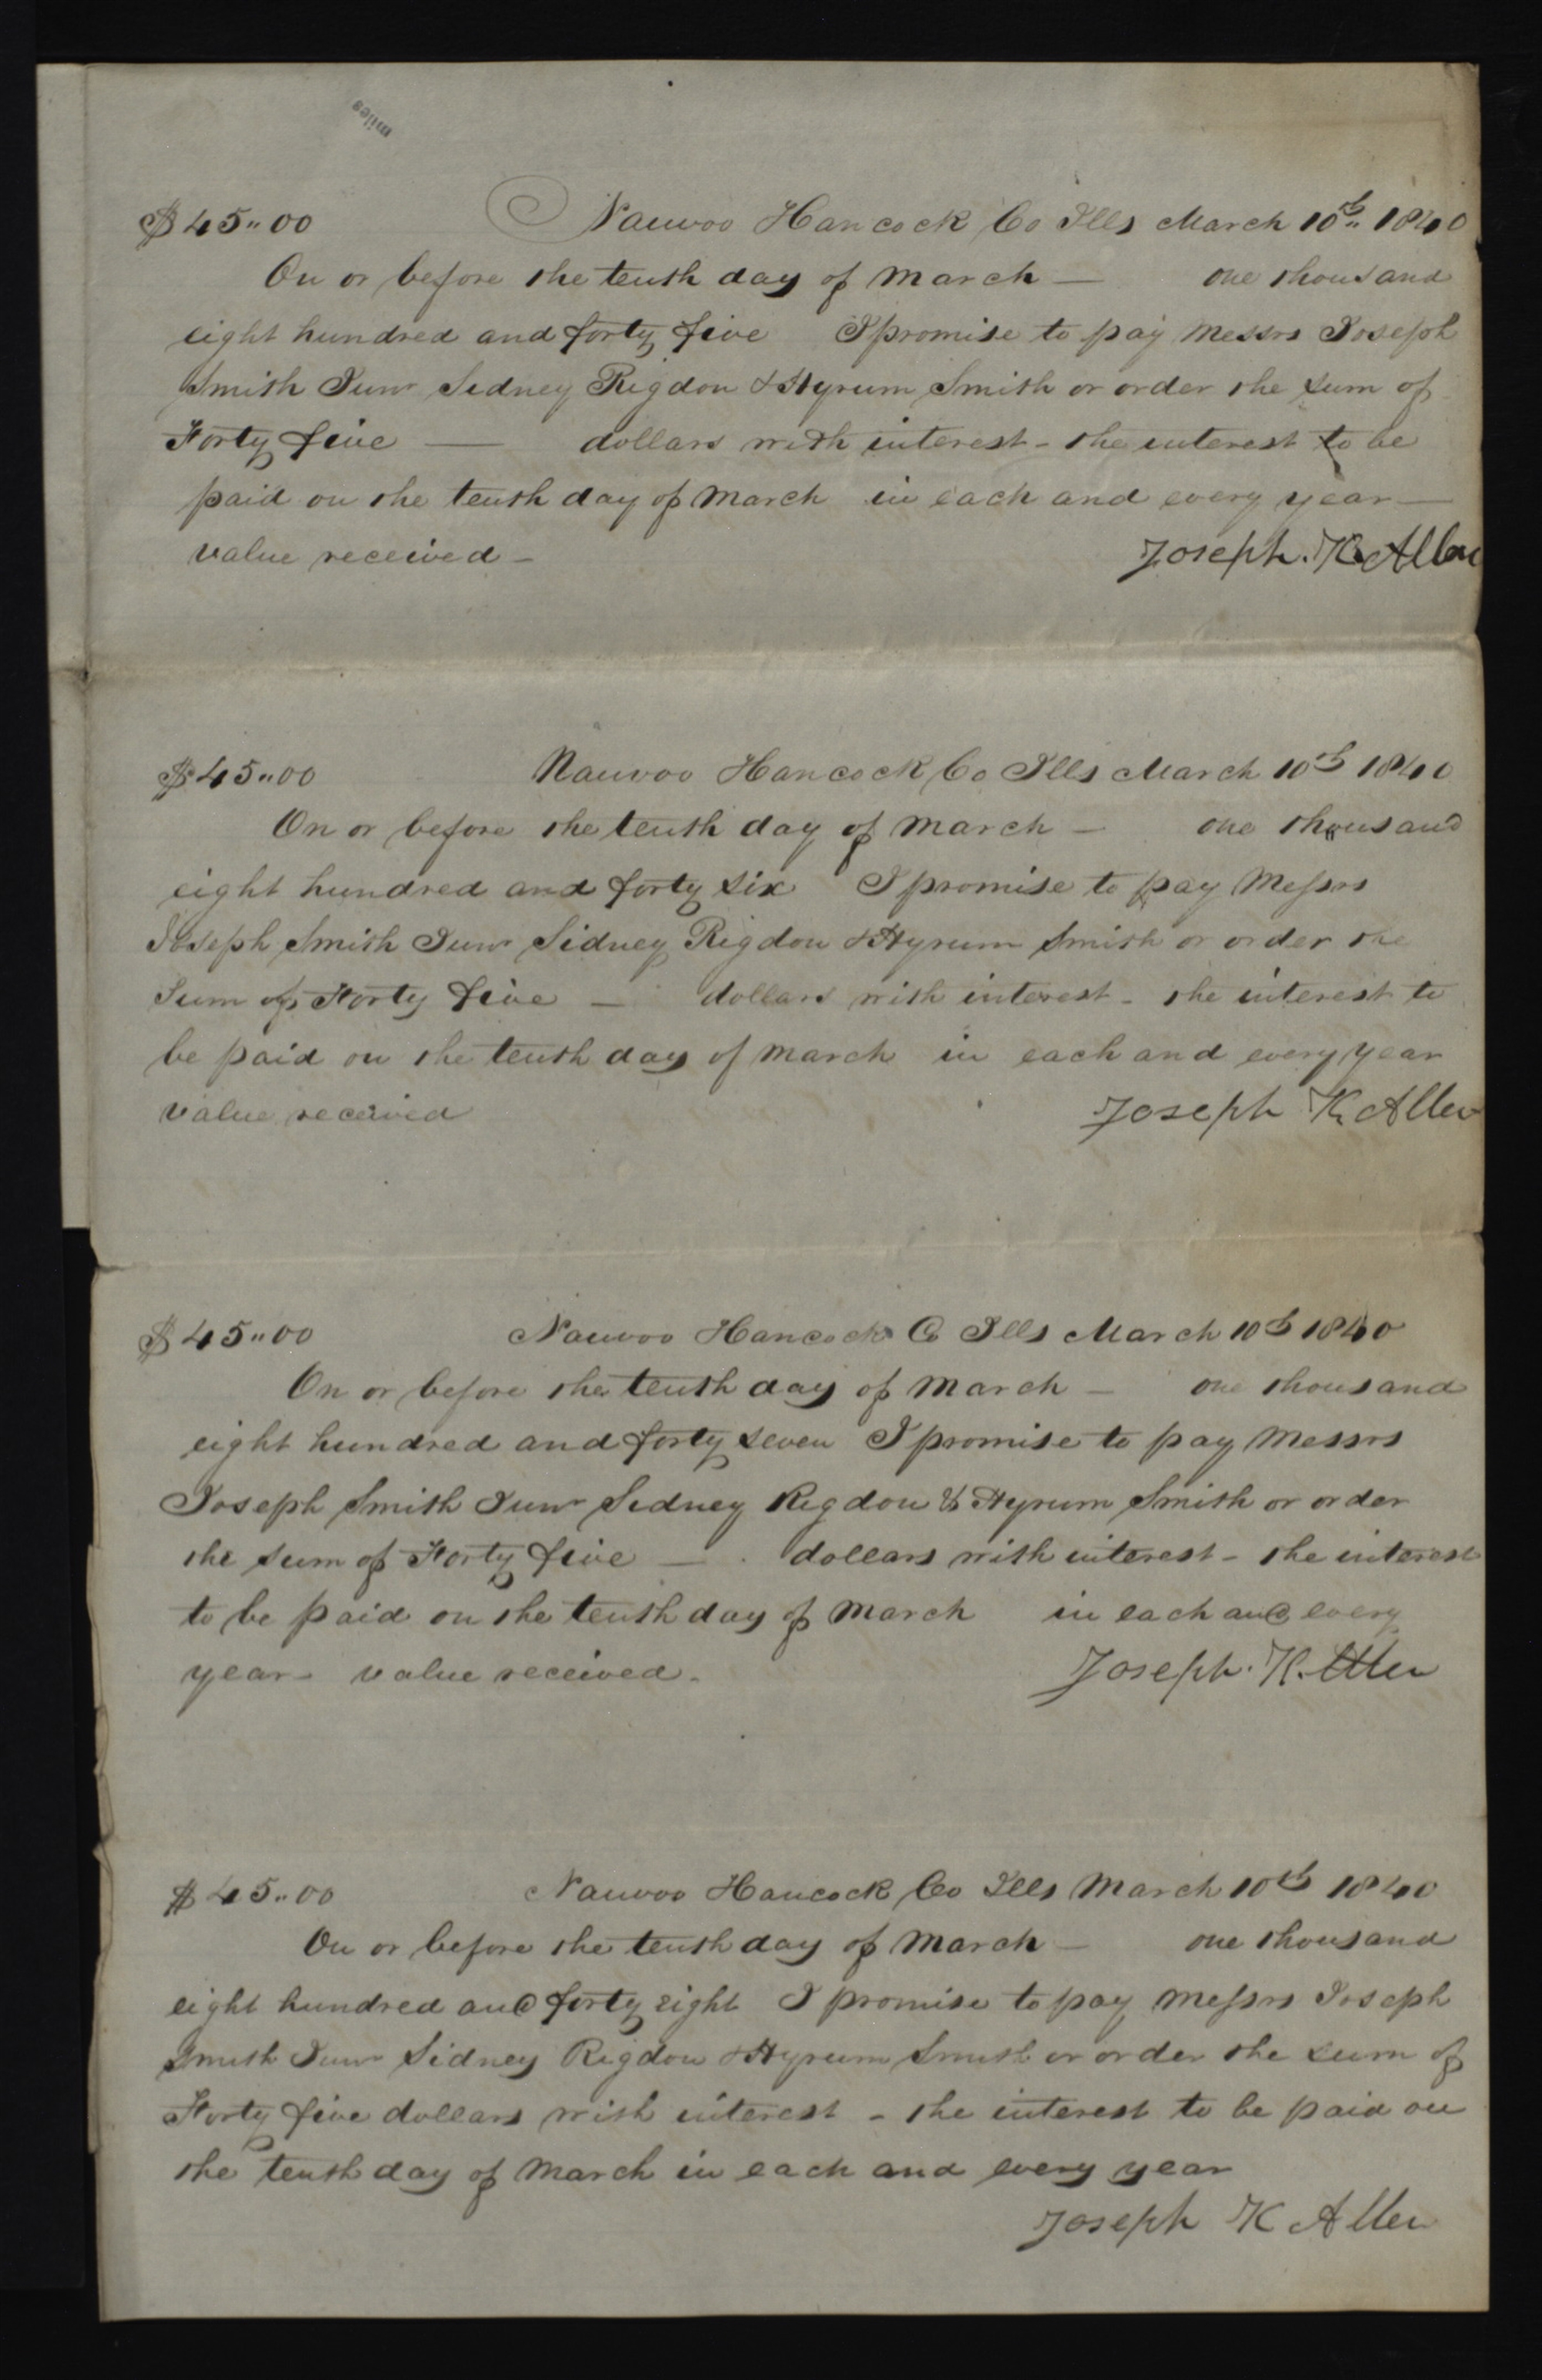 miles
$45"00 Nauvoo Hancock Co Ills March 10th 1840
On or before the tenth day of March — one thousand
eight hundred and forty five I promise to pay Messrs Joseph
Smith Junr Sidney Rigdon & Hyrum Smith or order the sum of
Forty five — dollars with interest - the interest to be
paid on the tenth day of March in each and every year —
value received —
Joseph. K Allen
$45"00 Nauvoo Hancock Co Ills March 10th 1840
On or before the tenth day of March — one thousand
eight hundred and forty six I promise to pay Messrs
Joseph Smith Junr Sidney Rigdon & Hyrum Smith or order the
Sum of Forty five — dollars with interest - the interest to
be paid on the tenth day of March in each and every year
value received
Joseph K Allen
$45"00 Nauvoo Hancock Co Ills March 10th 1840
On or before the tenth day of March — one thousand
eight hundred and forty seven I promise to pay Messrs
Joseph Smith Junr Sidney Rigdon & Hyrum Smith or order
the sum of Forty five — dollars with interest - the interest
to be paid on the tenth day of March in each and every
year - value received -
Joseph. K. Allen
$45"00 Nauvoo Hancock Co Ills March 10th 1840
On or before the tenth day of March — one thousand
eight hundred and forty eight I promise to pay Messrs Joseph
Smith Junr Sidney Rigdon & Hyrum Smith or order the sum of
Forty five dollars with interest - the interest to be paid on
the tenth day of March in each and every year
Joseph K Allen